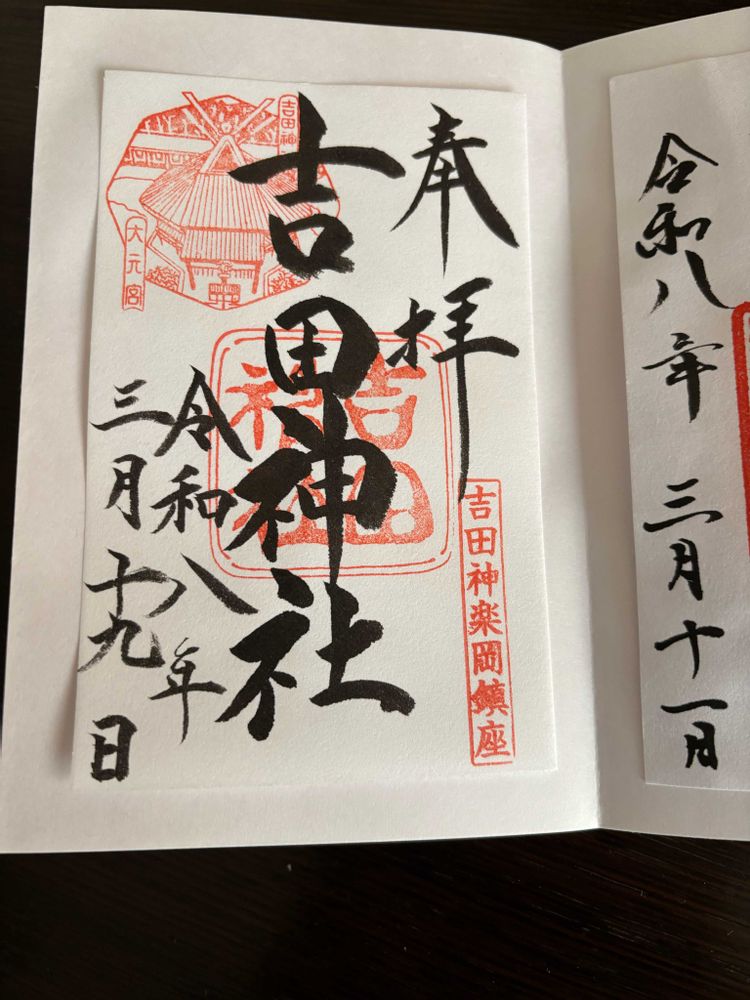 奉拝
吉田神社
令和八年
三月十九日
吉田神
大元宮
吉田神社
吉田神楽岡鎮座
令和八年 三月十一日